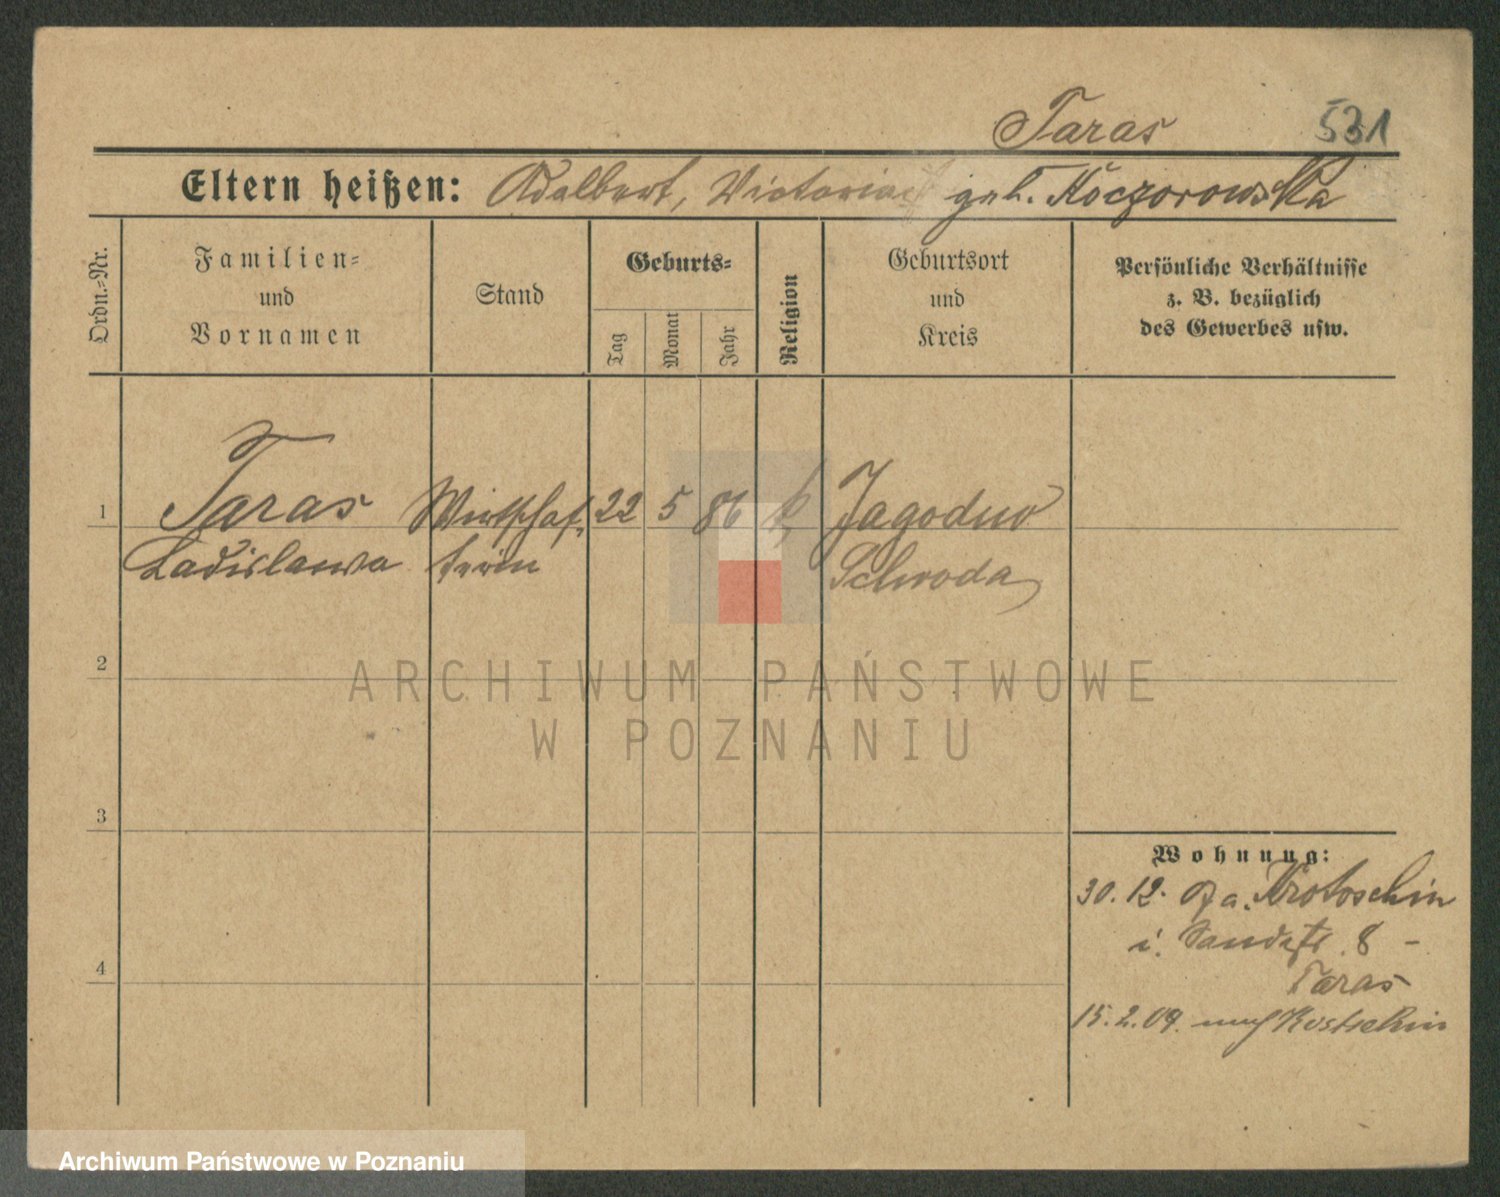 Taras 531
Eltern heißen: Adalbert, Victoria geb. Koczorowska
Ordn.-Nr.
Familien-
und
Vornamen
Stand
Geburts-
Tag
Monat
Jahr
Religion
Geburtsort
und
Kreis
Persönliche Verhältnisse
z. B. bezüglich
des Gewerbes usw.
1 Taras Wirtschaf- 22 5 86 k. Jagodno
Ladislawa terin Schroda
2
ARCHIWUM PAŃSTWOWE
W POZNANIU
3
Wohnung:
30. 12. Krotoschin
i. 8 –
4
Taras
15. 2. 09. nach Kostschin
Archiwum Państwowe w Poznaniu